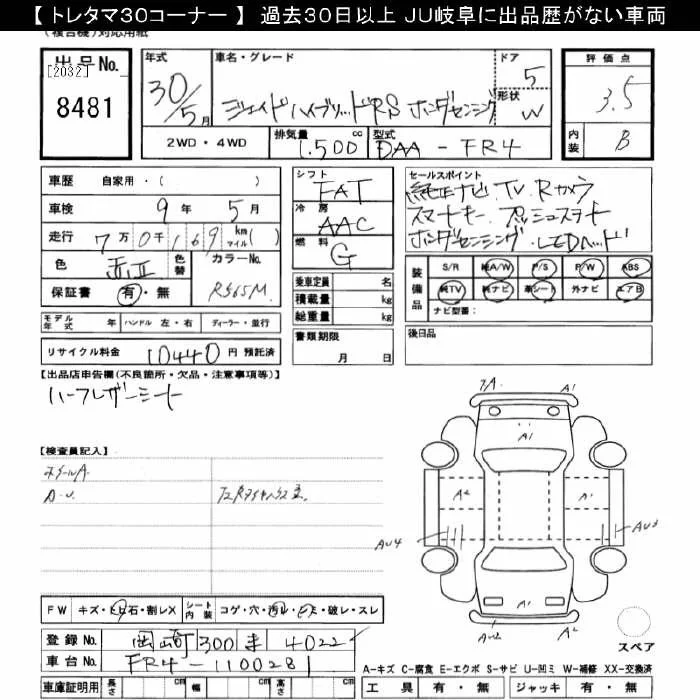 【 トレタマ30コーナー 】 過去30日以上 JU岐阜に出品歴がない車両
(複合機)対応用紙
出品No.
[2032]
8481
年式 車名・グレード ドア 評価点
30/5月 ジェイドハイブリッドRS ホンダセンシング 5 3.5
形状 W
2WD・4WD 排気量 1.500 cc 型式 DAA - FR4 内装 B
車歴 自家用・( )
車検 9年 5月
走行 7万0千169 km マイル( )
色 赤II 色替 カラーNo.
保証書 有・無 RS65M
シフト FAT
冷房 AAC
燃料 G
セールスポイント
純正ナビ.TV.Rカメラ
スマートキー.プッシュスタート
ホンダセンシング.LEDヘッド
乗車定員 名
積載量 kg
総重量 kg
装備品 S/R 純A/W P/S P/W ABS
純TV 純ナビ 革シート 外ナビ エアB
ナビ型番:
モデル年式 年 ハンドル 左・右 ディーラー・並行
書類期限 月 日
後日品
リサイクル料金 10440 円 預託済
【出品店申告欄(不良箇所・欠品・注意事項等)】
ハーフレザーシート
【検査員記入】
ホイールA
A.U.
7A A1
A1
A2 A1
AU4 AU3
AU2 A1
スペア
FW キズ・ヒビ石・割レX シート内装 コゲ・穴・汚レ・シミ・破レ・スレ
登録No. 岡崎 300 ま 4022
車台No. FR4-1100281
A-キズ C-腐食 E-エクボ S-サビ U-凹ミ W-補修 XX-交換済
車庫証明用 長さ cm 幅 cm 高さ cm 工具 有・無 ジャッキ 有・無